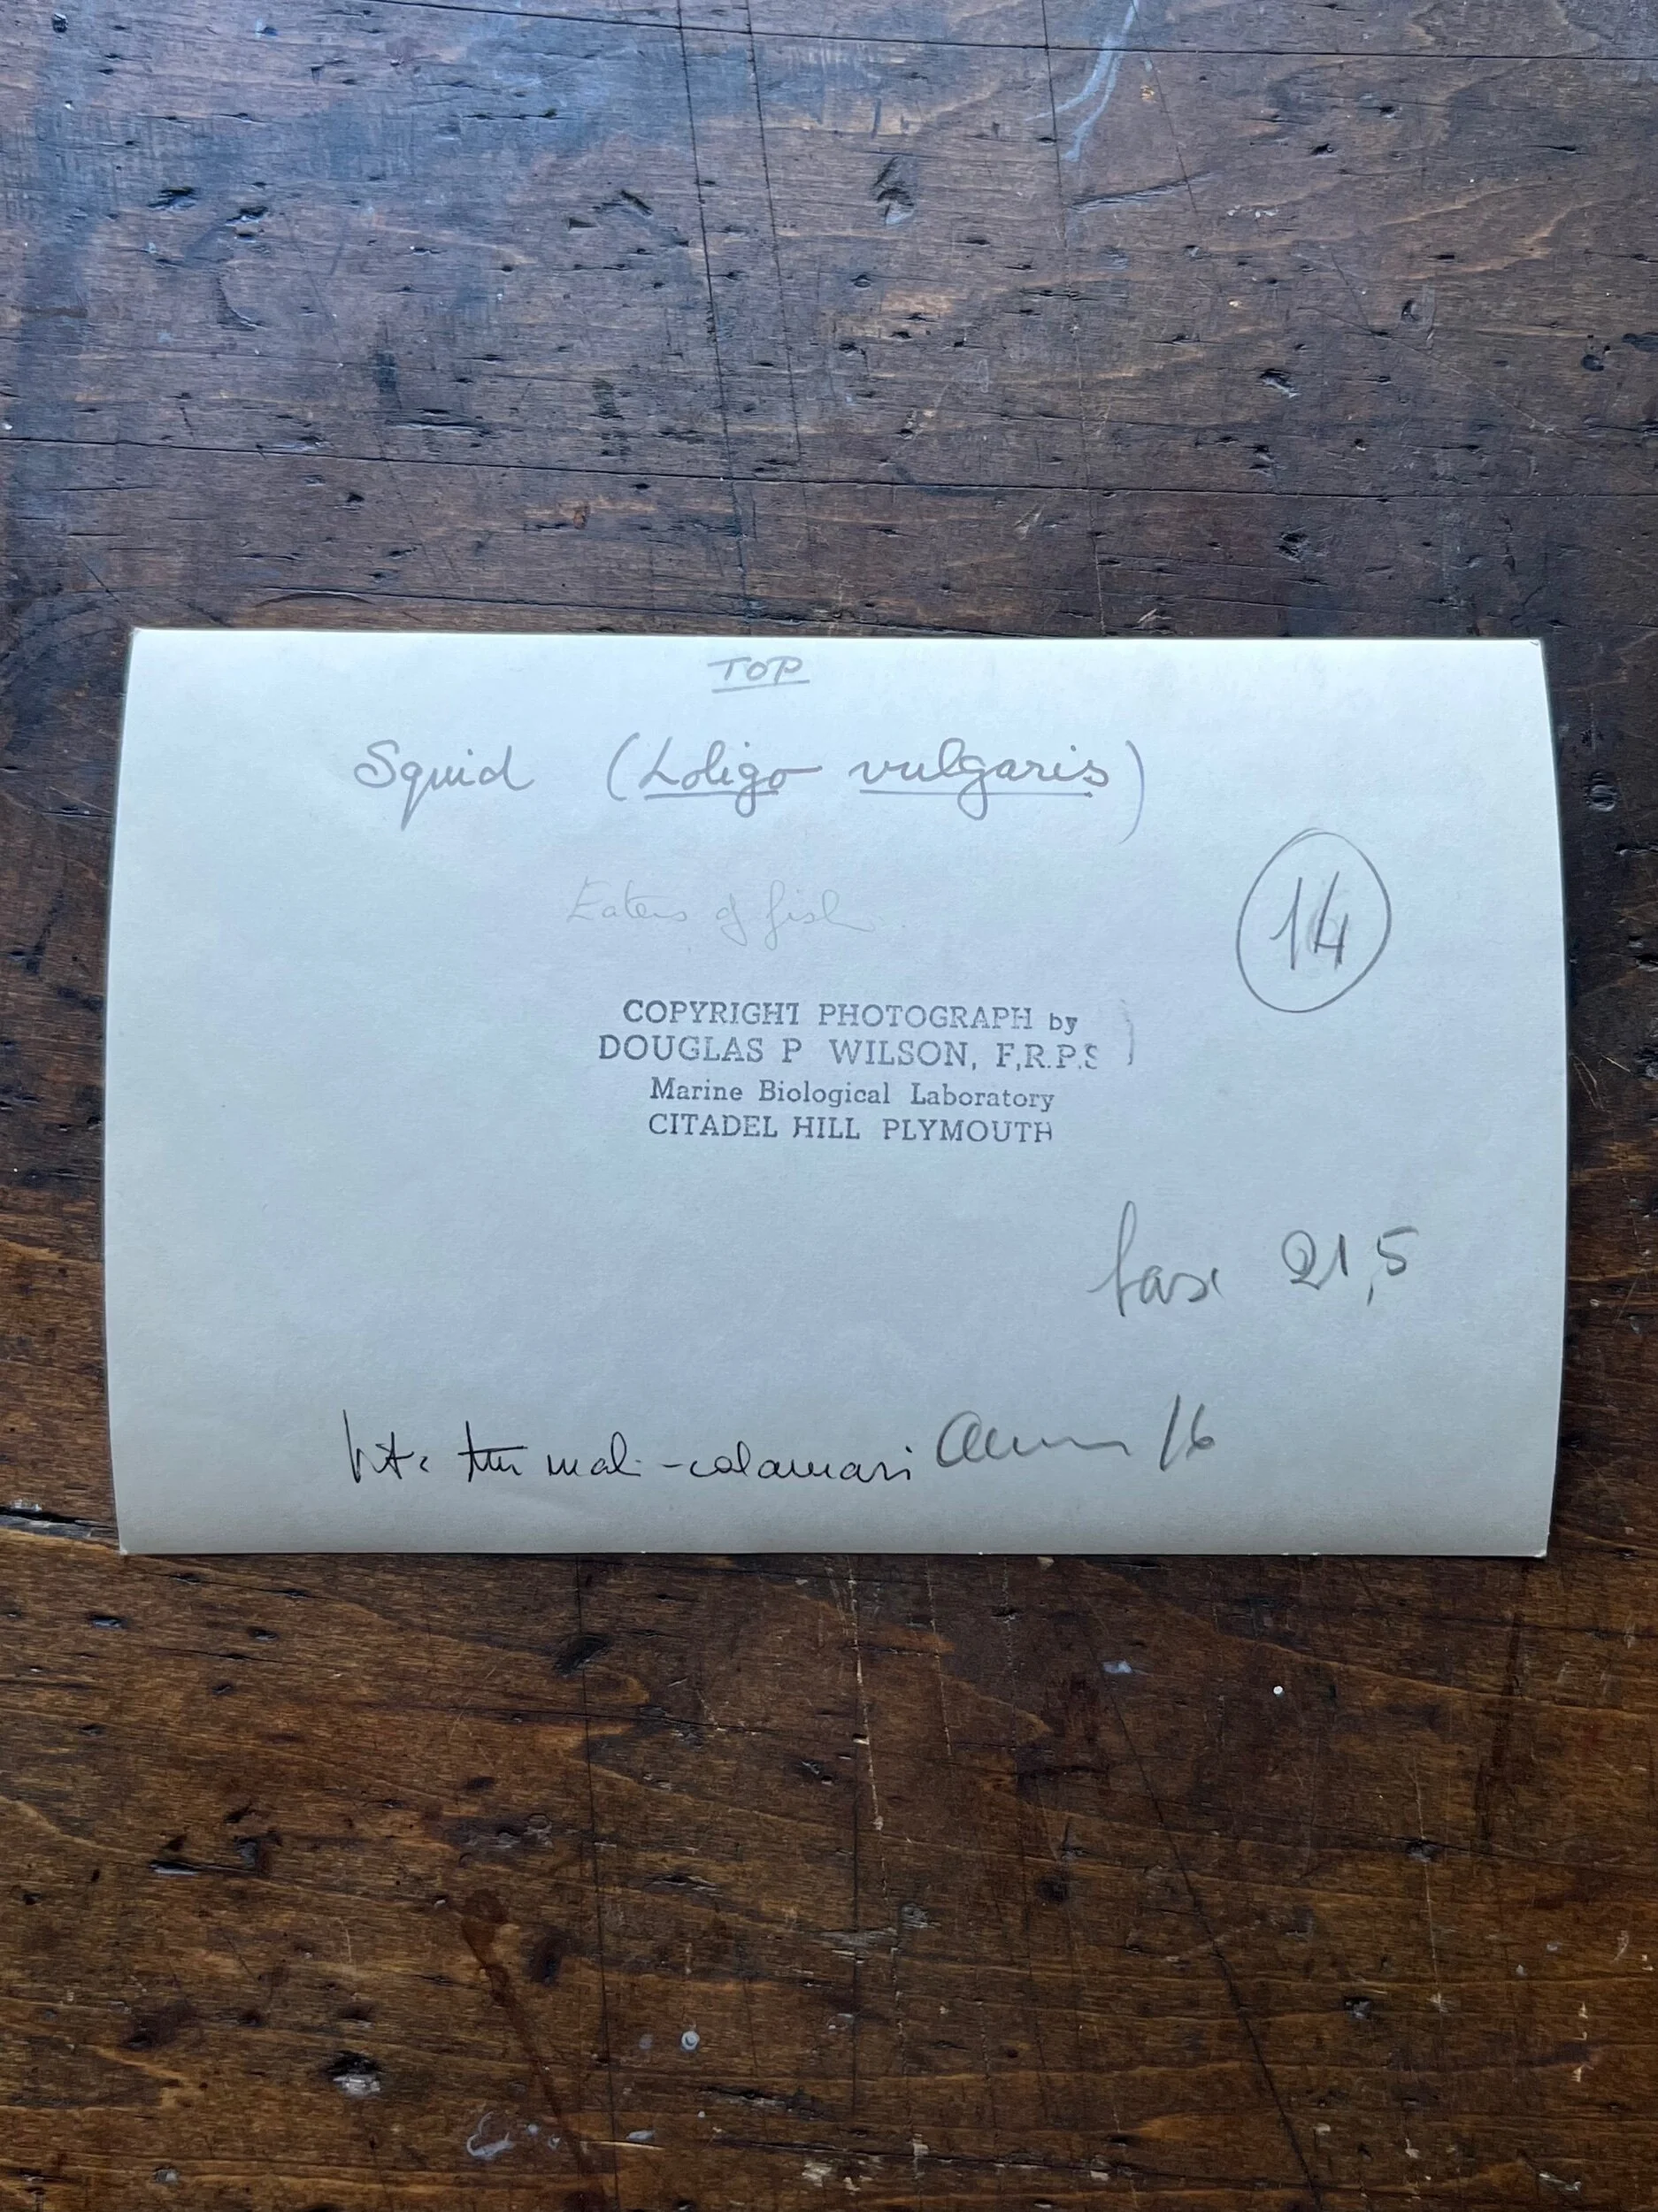 TOP
Squid (Loligo vulgaris)
14
Eaters of fish
COPYRIGHT PHOTOGRAPH by
DOUGLAS P WILSON, F.R.P.S
Marine Biological Laboratory
CITADEL HILL PLYMOUTH
base 21,5
calamari 16